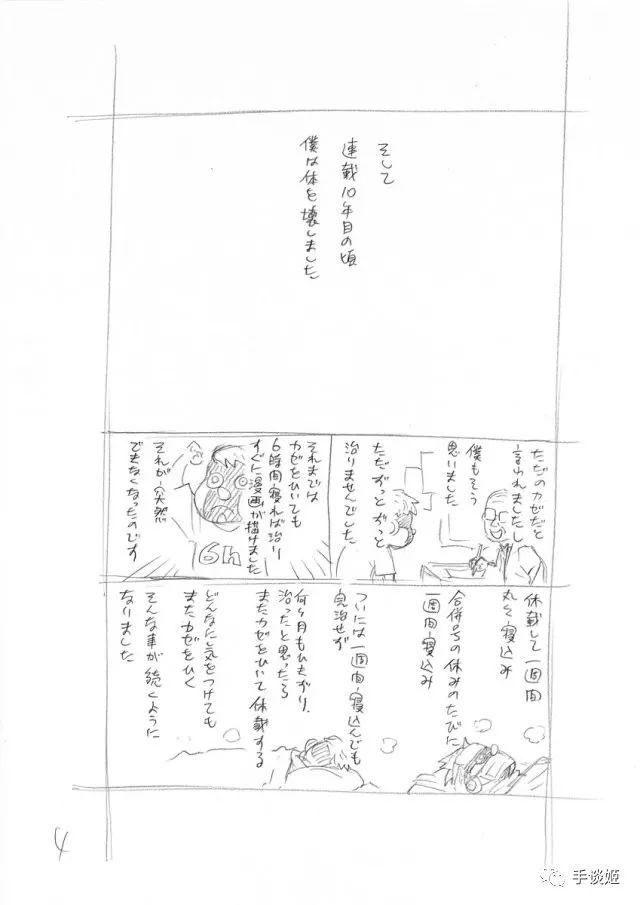 そして
連載10年目の頃
僕は体を壊しました
ただのカゼだと
言われましたし
僕もそう
思いました
ただずっとずっと
治りませんでした
それまでは
カゼをひいても
6時間寝れば治り
すぐに漫画が描けました
6h
それが突然
できなくなったのです
休載して一週間
丸々寝込み
合併号の休みのたびに
一週間寝込み
ついには一週間寝込んでも
完治せず
何ヶ月もひきずり
治ったと思ったら
またカゼをひいて休載する
どんなに気をつけても
またカゼをひく
そんな事が続くように
なりました
4
手谈姬